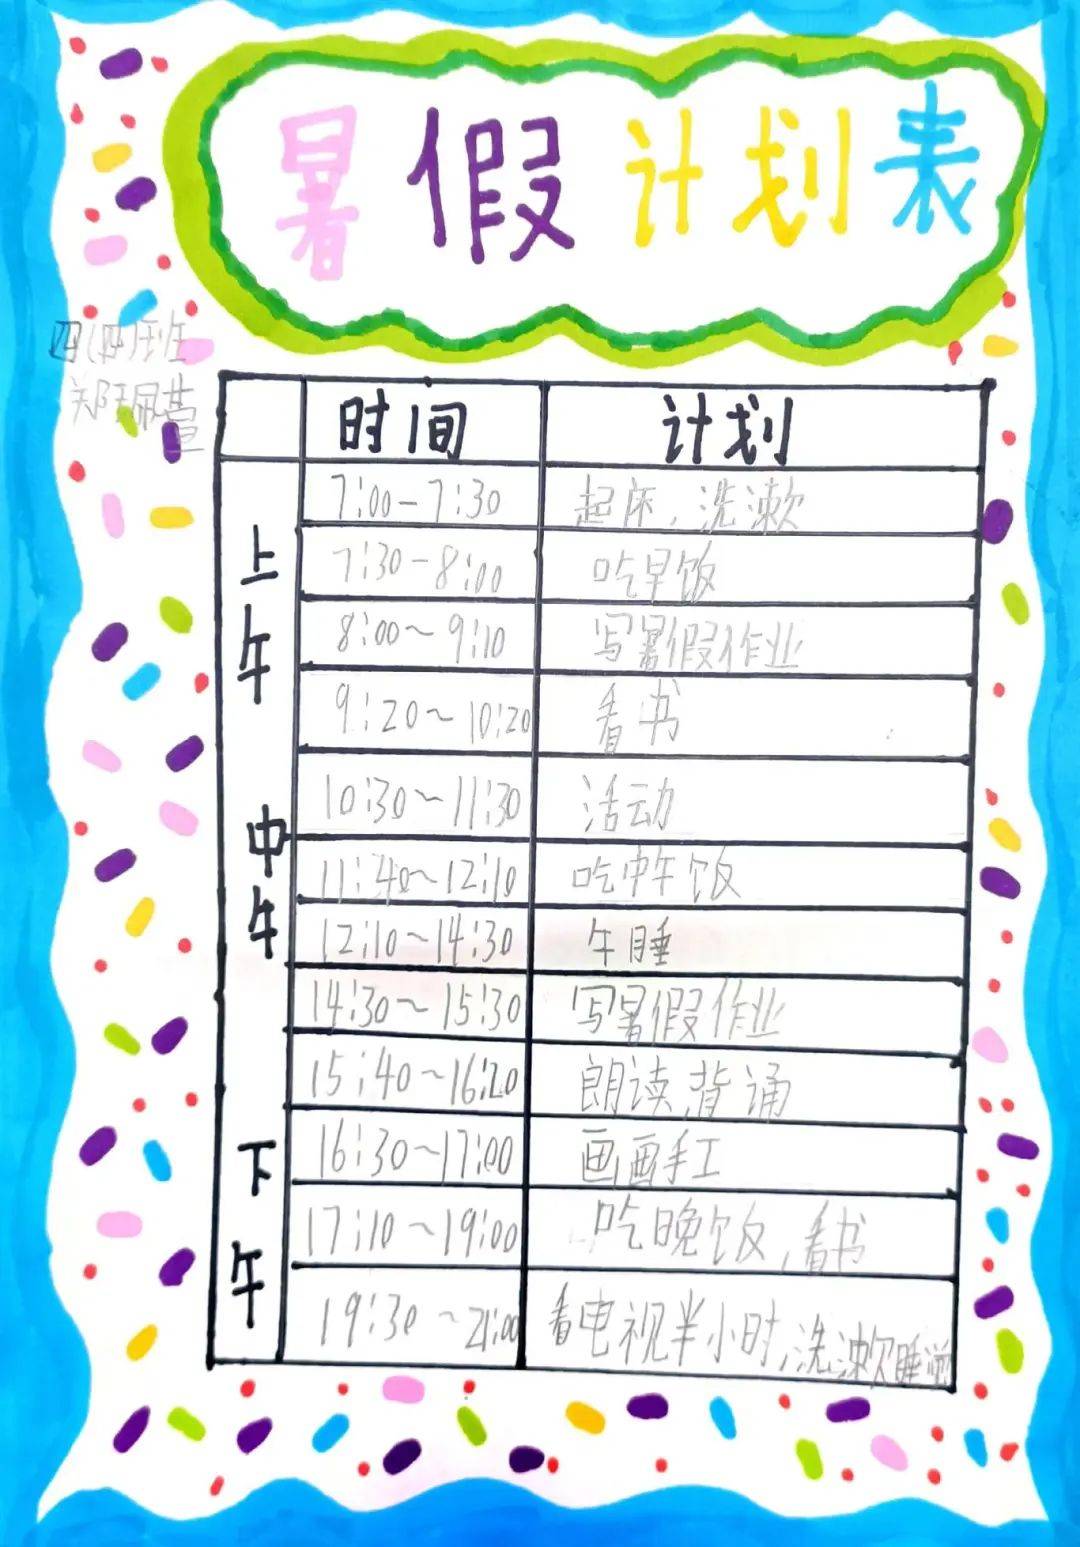 暑假计划表
四(四)班
时间 计划
上午
7:00-7:30 起床,洗漱
7:30-8:00 吃早饭
8:00~9:10 写暑假作业
9:20~10:20 看书
10:30~11:30 活动
中午
11:40~12:10 吃中午饭
12:10~14:30 午睡
14:30~15:30 写暑假作业
下午
15:40~16:20 朗读,背诵
16:30~17:00 画画手工
17:10~19:00 吃晚饭,看书
19:30~21:00 看电视半小时,洗漱睡觉